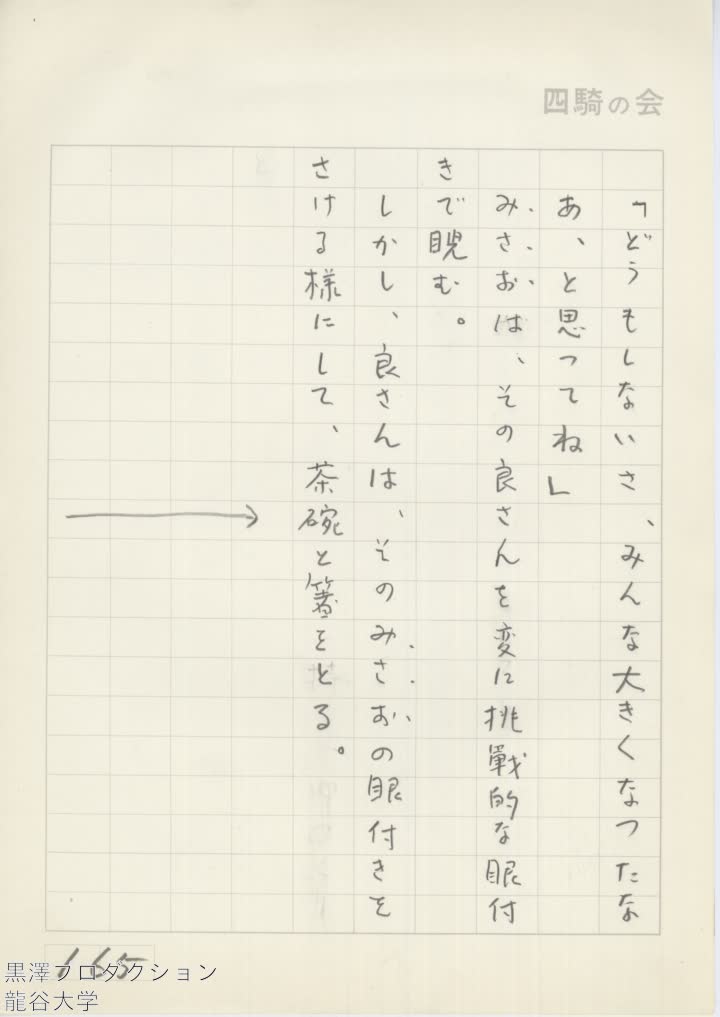 四騎の会
「どうもしないさ、みんな大きくなつたな
あ、と思ってね」
みさおは、その良さんを変に挑戦的な眼付
きで睨む。
しかし、良さんは、そのみさおの眼付きを
さける様にして、茶碗と箸をとる。
165
黒澤プロダクション
龍谷大学